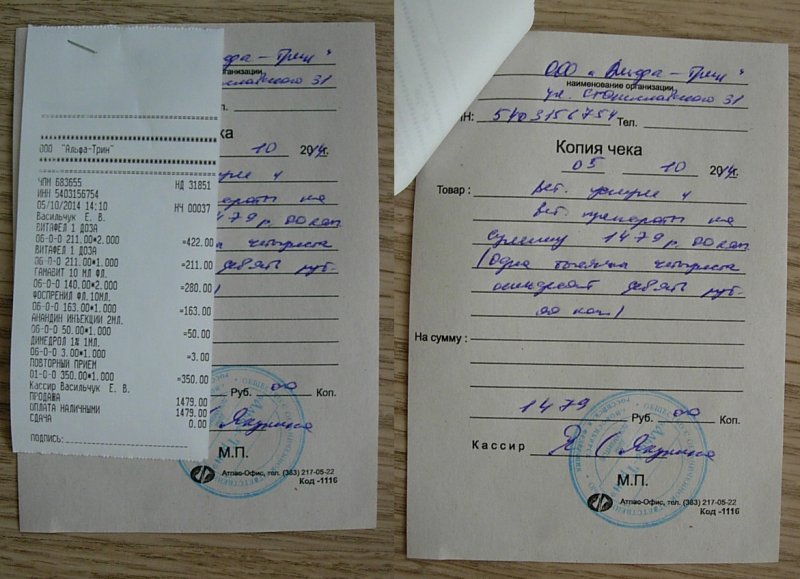 ООО "Альфа-Трин"
ЧПМ 683655 НД 31851
ИНН 5403156754
05/10/2014 14:10 НЧ 00037
Васильчук Е. В.
ВИТАФЕЛ 1 ДОЗА
06-0-0 211.00*2.000 =422.00
ВИТАФЕЛ 1 ДОЗА
06-0-0 211.00*1.000 =211.00
ГАМАВИТ 10 МЛ ФЛ.
06-0-0 140.00*2.000 =280.00
ФОСПРЕНИЛ ФЛ.10МЛ.
06-0-0 163.00*1.000 =163.00
АНАНДИН ИНЪЕКЦИИ 2МЛ.
06-0-0 50.00*1.000 =50.00
ДИМЕДРОЛ 1% 1МЛ.
06-0-0 3.00*1.000 =3.00
ПОВТОРНЫЙ ПРИЕМ
01-0-0 350.00*1.000 =350.00
Кассир Васильчук Е. В.
ПРОДАЖА 1479.00
ОПЛАТА НАЛИЧНЫМИ 1479.00
СДАЧА 0.00
ПОДПИСЬ:
10 2014
Руб. 00 Коп.
М.П.
Атлас-Офис, тел. (383) 217-05-22
Код -1116
ООО "Альфа-Трин"
наименование организации
ул. Станиславского 31
ИН: 5403156754 Тел.
Копия чека
05 10 2014
Товар : вет. услуги и
вет. препараты на
сумму 1479 р. 00 коп.
(одна тысяча четыреста
семьдесят девять руб.
00 коп.)
На сумму :
1479 Руб. 00 Коп.
Кассир
М.П.
Атлас-Офис, тел. (383) 217-05-22
Код -1116